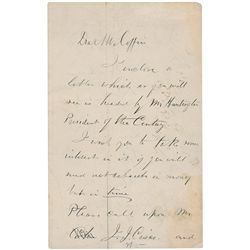 Dear Mr Coffin
I enclose a
letter which as you will
see is headed by Mr Huntington
President of the Century.
I wish you to take some
interest in it if you will
and not in money
but in time
Please call upon Mr
J. J. and